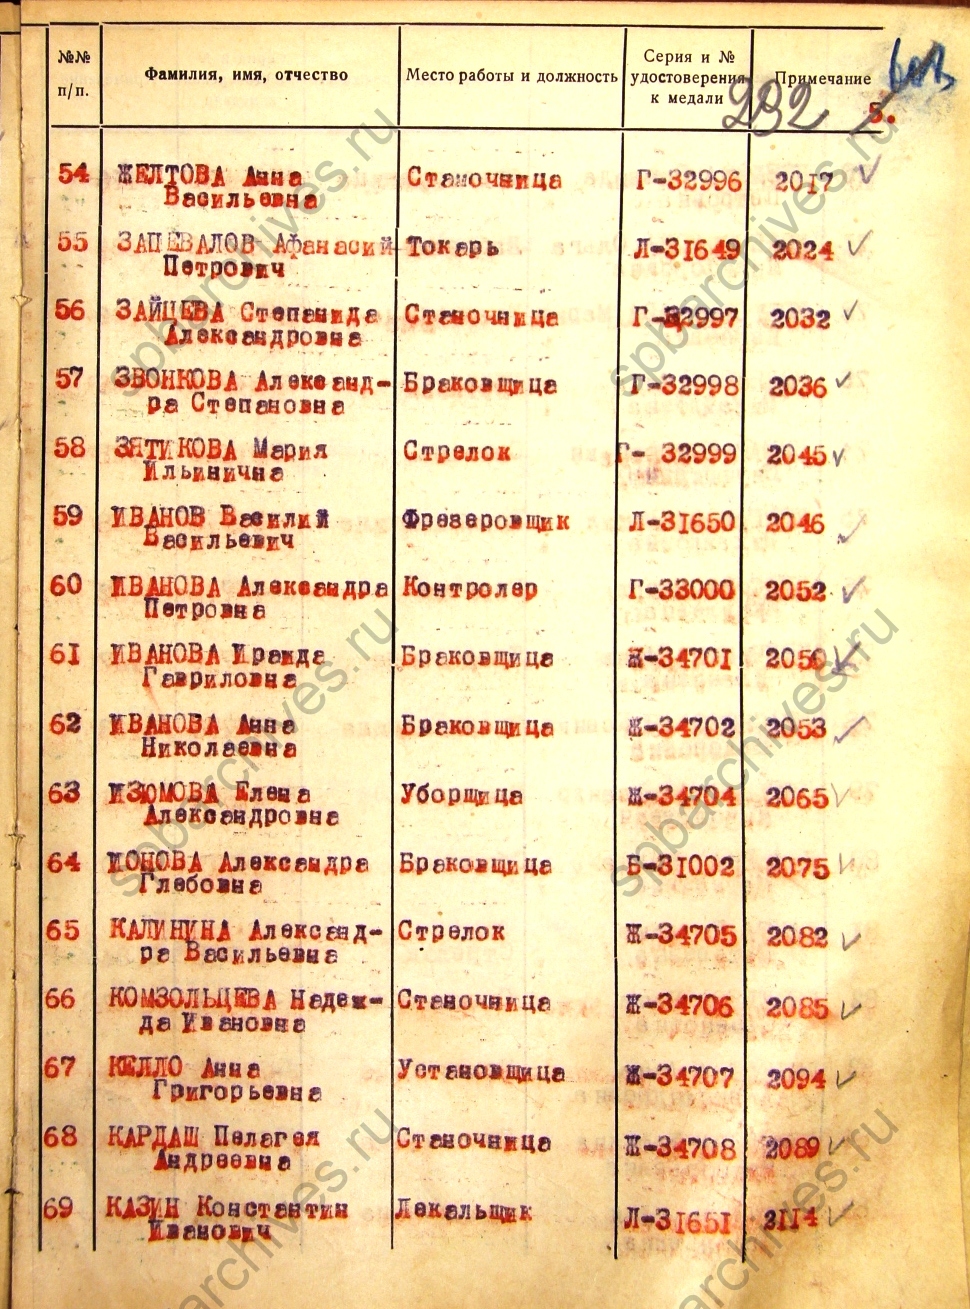 №№ п/п. Фамилия, имя, отчество Место работы и должность Серия и № удостоверения к медали Примечание
232 5.
54 ЖЕЛТОВА Анна Станочница Г-32996 2017
Васильевна
55 ЗАПЕВАЛОВ Афанасий Токарь Л-31649 2024
Петрович
56 ЗАЙЦЕВА Степанида Станочница Г-32997 2032
Александровна
57 ЗВОНКОВА Александ- Браковщица Г-32998 2036
ра Степановна
58 ЗЯТИКОВА Мария Стрелок Г- 32999 2045
Ильинична
59 ИВАНОВ Василий Фрезеровщик Л-31650 2046
Васильевич
60 ИВАНОВА Александра Контролер Г-33000 2052
Петровна
61 ИВАНОВА Ираида Браковщица Ж-34701 2050
Гавриловна
62 ИВАНОВА Анна Браковщица Ж-34702 2053
Николаевна
63 ИЗЮМОВА Елена Уборщица Ж-34704 2065
Александровна
64 ИОНОВА Александра Браковщица Б-31002 2075
Глебовна
65 КАЛИНИНА Александ- Стрелок Ж-34705 2082
ра Васильевна
66 КОМЗОЛЬЦЕВА Надеж- Станочница Ж-34706 2085
да Ивановна
67 КЕЛЛО Анна Установщица Ж-34707 2094
Григорьевна
68 КАРДАШ Пелагея Станочница Ж-34708 2089
Андреевна
69 КАЗИН Константин Лекальщик Л-31651 2114
Иванович
spbarchives.ru
spbarchives.ru
spbarchives.ru
spbarchives.ru
spbarchives.ru
spbarchives.ru